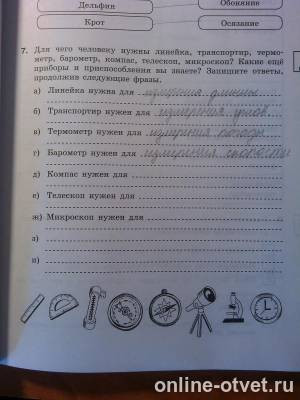 Дельфин
Обоняние
Крот
Осязание
7. Для чего человеку нужны линейка, транспортир, термо-
метр, барометр, компас, телескоп, микроскоп? Какие ещё
приборы и приспособления вы знаете? Запишите ответы,
продолжив следующие фразы.
а) Линейка нужна для измерения длинны
б) Транспортир нужен для измерения углов
в) Термометр нужен для измерения погоды
г) Барометр нужен для измерения
д) Компас нужен для
е) Телескоп нужен для
ж) Микроскоп нужен для
з)
и)
online-otvet.ru